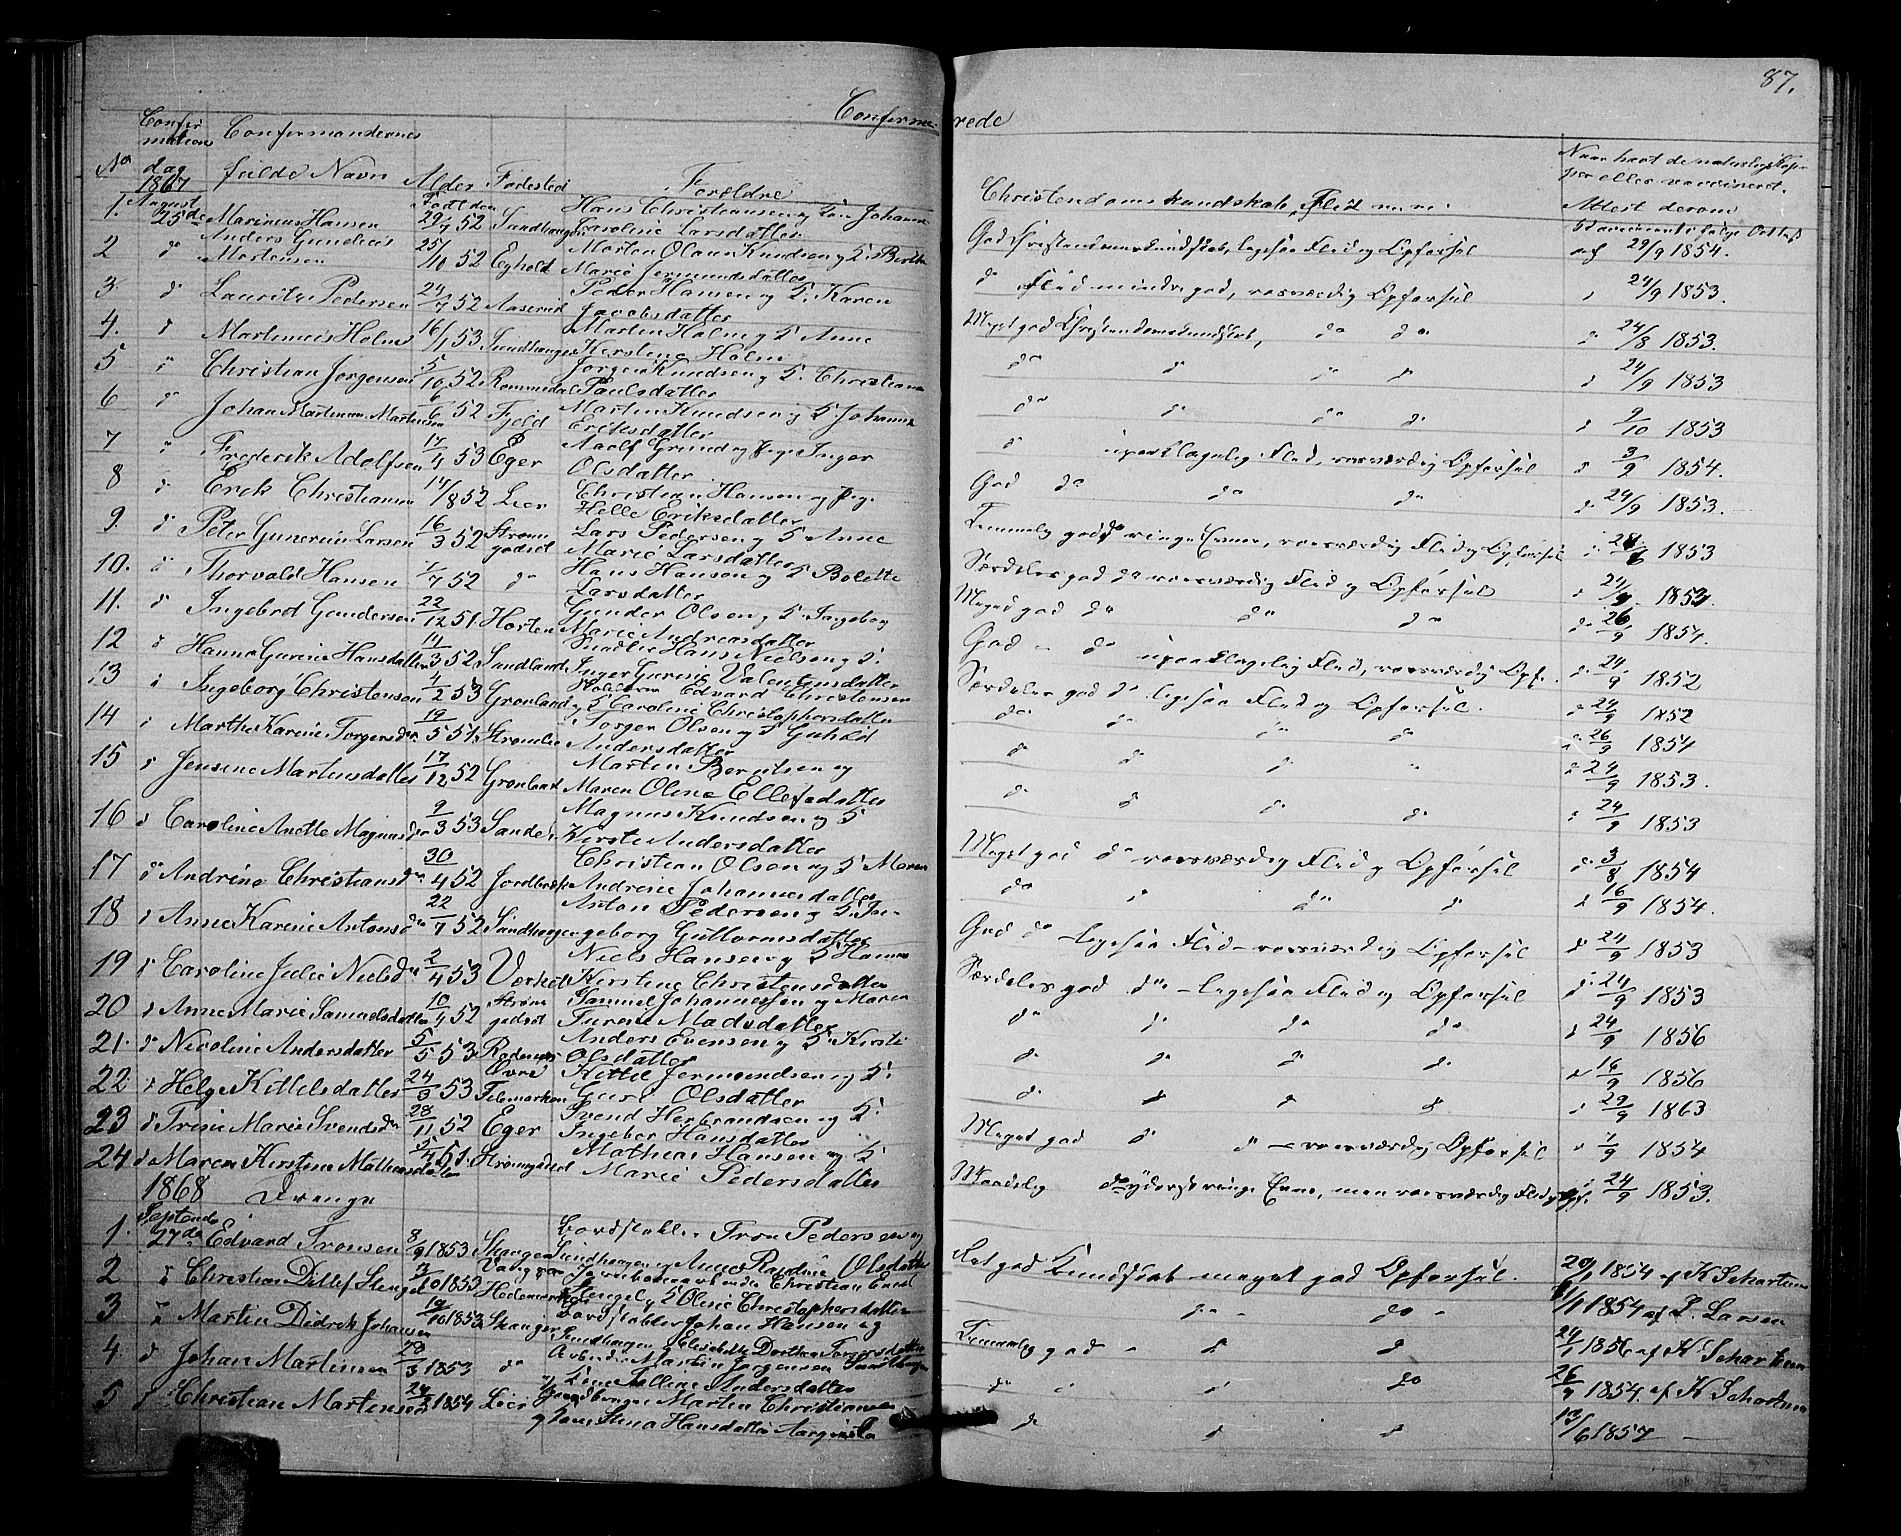 87.
Confirmerede
No Confirmations dag Confermandernes fulde Navn Alder Fødested Forældre Christendoms kundskab, Flid m.m. Naar havt de naturlige Kopper eller vaccineret. Attest derom
1867 Født den
1. August 25de Marinius Hansen 29/7 52 Sandhaugen Hans Christiansen og Kone Johanne Caroline Larsdatter God Christendomskundskab, ligesaa Flid og Opførsel af 29/9 1854.
2 do Anders Gundius Mortensen 25/10 52 Eghold Morten Olaus Knudsen og K. Berthe Marie Jermundsdatter do Flid mindre god, rosværdig Opførsel d 24/9 1853.
3 do Lauritz Pedersen 24/7 52 Aaserud Peder Hansen og K. Karen Jacobsdatter Meget god Christendomskundskab, do do d 24/8 1853.
4. d Martinius Holm 16/1 53 Sandhaugen Martin Holm og K Anne Kerstine Holm do d do d d 24/9 1853
5 " Christian Jørgensen 5/10 52 Rømmedal Jørgen Knudsen og K. Christiane Paulsdatter do d. do d. d 9/10 1853
6 d Johan Martinius Martinsen 6/6 52 Fjeld Martin Knudsen og K. Johanne Eriksdatter d upaaklagelig Flid, rosværdig Opførsel d 3/9 1854.
7 " Frederik Adolfsen 17/4 53 Eger Adolf Grund og Pige Inger Olsdatter God do do do d 24/9 1853.
8 d Erik Christiansen 14/8 52 Lier Christian Hansen og Pig. Helle Eriksdatter Temmelig god do ringe Evner, rosværdig Flid og Opførsel d. 28/6 1853
9. d Peter Gunerius Larsen 16/3 52 Strømgodset Lars Pedersen og K Anne Marie Larsdatter Særdeles god do rosværdig Flid og Opførsel d 1853.
10. d Thorvald Hansen 1/7 52 do Hans Hansen og K Bolette Larsdatter Meget god do do do d. 26/9 1854.
11. d Ingebret Gundersen 22/12 51 Horten Gunder Olsen og K. Ingeborg Marie Andreasdatter God - do upaaklagelig Flid, rosværdig Opf. d. 24/9 1852
12 d Hanna Gurine Hansdatter 14/3 52 Sandland Hans Nielsen og K. Inger Gurine Valentinsdatter Særdeles god do ligesaa Flid og Opførsel. d 24/9 1852
13 d Ingeborg Christensen 4/2 53 Grønland Edvard Christensen og K Caroline Christophersdatter do do do do d 26/9 1854
14 d Marthe Karine Torgersdr 19/5 51 Strømlie Torger Olsen og K Guhild Andersdatter d do d " d 24/9 1853.
15 d Jensine Martinsdatter 17/12 52 Grønland Martin Berntsen og Maren Oline Ellefsdatter d d d d d 24/9 1853
16 d Caroline Anette Magnusdr 9/3 53 Sande Magnus Knudsen og K Kirsti Andersdatter Meget god do rosværdig Flid og Opførsel d 3/8 1854
17 do Andrine Christiansdr 30/4 52 Christian Olsen og K Maren Andrine Johannesdatter do d do d d 16/9 1854.
18 d Anne Karine Antonsd 22/7 52 Sandhaugen Anton Pedersen og K. Ingeborg Guttormsdatter God do - ligesaa Flid - rosværdig Opførsel d 24/9 1853
19 d Caroline Julie Nielsdr 2/4 53 Værket Niels Hansen og K Hanna Kerstine Christensdatter Særdeles god do - ligesaa Flid og Opførsel d. 24/9 1853
20 d Anne Marie Samuelsdatter 10/4 52 Strømgodset Samuel Johannessen og Maren Turene Madsdatter do d do do d 24/9 1856
21. do Nicoline Andersdatter 5/5 53 Anders Evensen og K. Kirsti Olsdatter d d d d. d 16/9 1856
22 d Helge Kittelsdatter 24/3 53 Øvre Telemarken Kittil Jermundsen og K. Guri Olsdatter d. d d d d 29/9 1863
23 d Trine Marie Svendsdr 28/11 52 Eger Svend Herbrandsen og K. Ingebor Hansdatter Meget god d d - rosværdig Opførsel d 1/9 1854
24 d Maren Kirstine Mathiasdatter 5/4 51. Strømgodset Mathias Hansen og K Marie Pedersdatter Maadelig do yderst ringe Evne, men rosværdig Flid og Opf. d 24/9 1853.
1868 Drenge
1. September 27de Edvard Tronsen 8/9 1853 Skanger Bordstabler Tron Pedersen og Anne Randine Olsdatter Ret god Kundskab meget god Opførsel. 29/ 1854 af K Schartum
2 d Christian Ditlef Stengel 1853 Vang Hedemarken Christian Stengel og K Oline Christophersdatter do do 1854 af L. Larsen
3 d Martin Didrik Johansen 19/10 1853 Skanger Bordstabler Johan Hansen og Elisabeth Dorthea Torgersdatter Temmelig god - d d 24/ 1856 af K Schartum
4 d Johan Martinsen 29/3 1853 do Arbeider Martin Jørgensen og Kone Andersdatter do d do 26/9 1854. af K Schartum
5 d Christian Martinsen 1854 Lier Martin Christiansen og Kone Stina Hansdatter do d d 13/6 1857 -